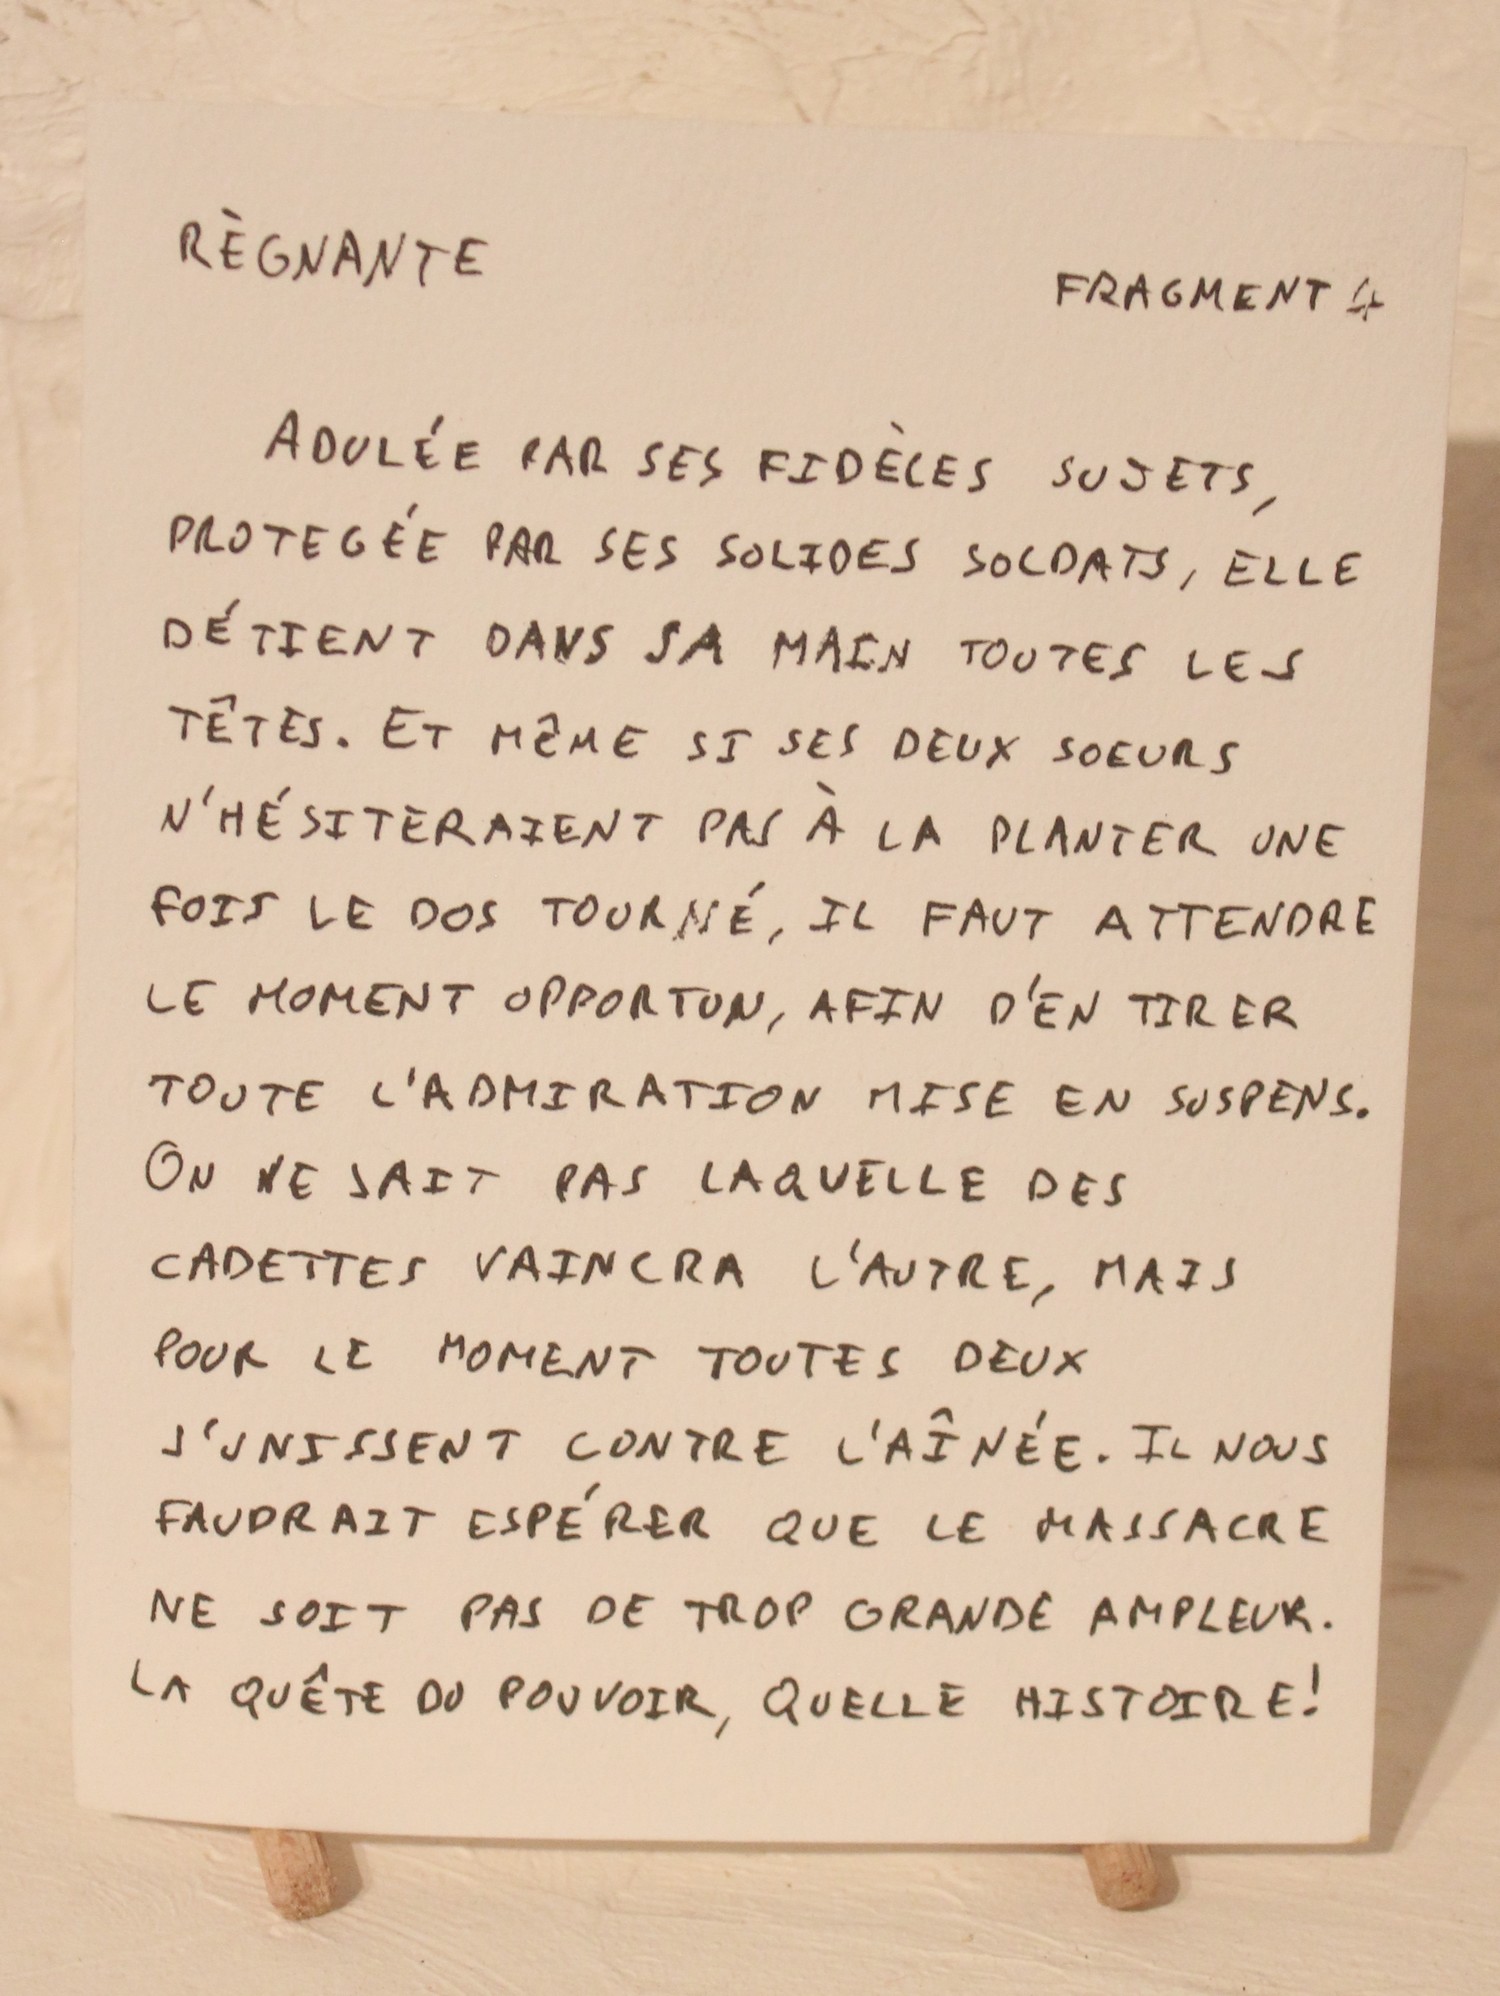 RÈGNANTE
FRAGMENT 4
ADULÉE PAR SES FIDÈLES SUJETS,
PROTEGÉE PAR SES SOLIDES SOLDATS, ELLE
DÉTIENT DANS SA MAIN TOUTES LES
TÊTES. ET MÊME SI SES DEUX SOEURS
N'HÉSITERAIENT PAS À LA PLANTER UNE
FOIS LE DOS TOURNÉ, IL FAUT ATTENDRE
LE MOMENT OPPORTUN, AFIN D'EN TIRER
TOUTE L'ADMIRATION MISE EN SUSPENS.
ON NE SAIT PAS LAQUELLE DES
CADETTES VAINCRA L'AUTRE, MAIS
POUR LE MOMENT TOUTES DEUX
S'UNISSENT CONTRE L'AÎNÉE. IL NOUS
FAUDRAIT ESPÉRER QUE LE MASSACRE
NE SOIT PAS DE TROP GRANDE AMPLEUR.
LA QUÊTE DU POUVOIR, QUELLE HISTOIRE!